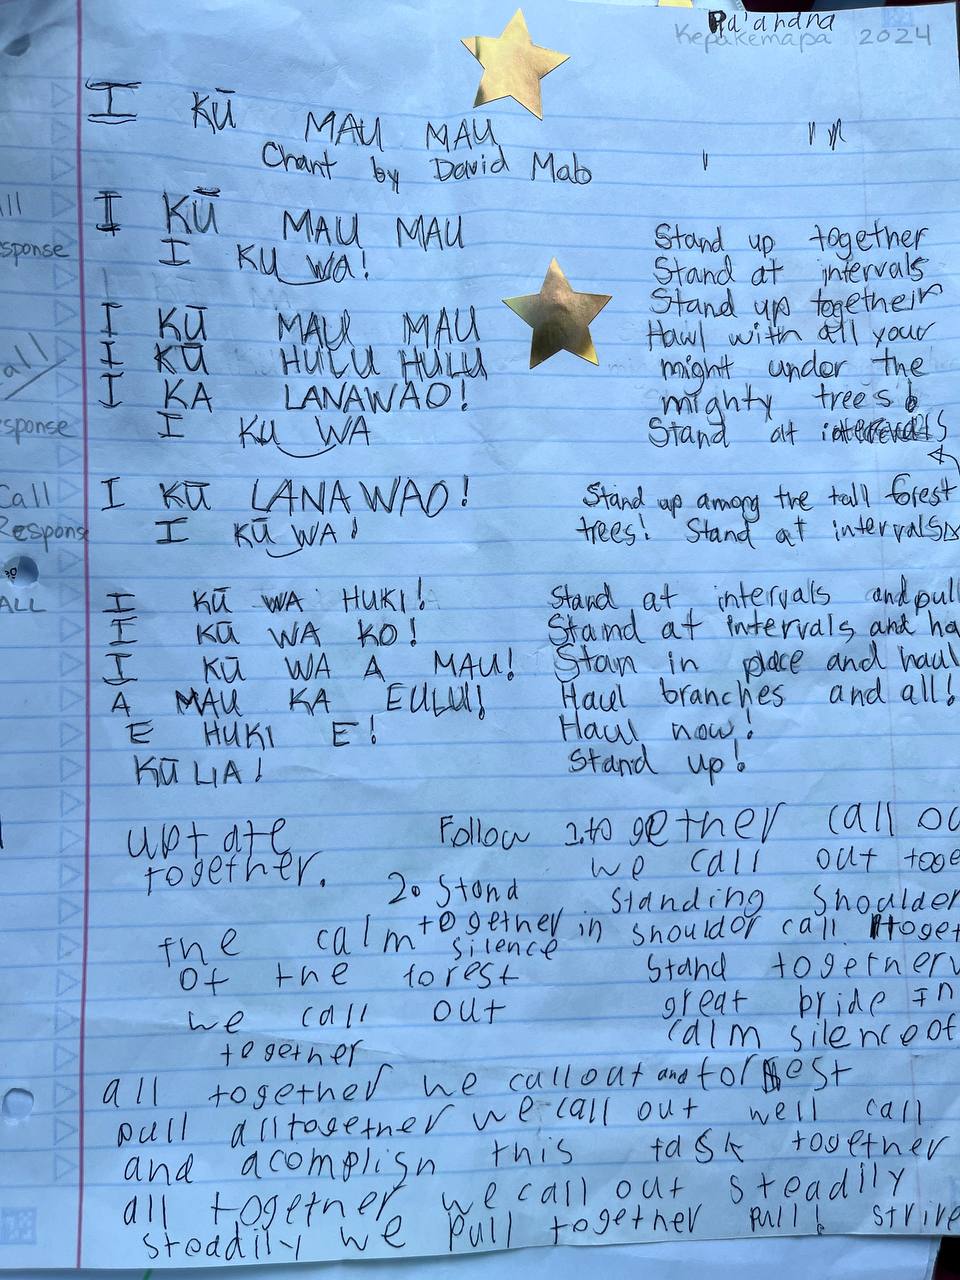 Pa'ahana
Kepakemapa 2024
I KŪ MAU MAU
Chant by David Malo
I KŪ MAU MAU
I KU WA!
Stand up together
Stand at intervals
sponse
I KŪ MAU MAU
I KŪ HULU HULU
I KA LANAWAO!
I KU WA
Stand up together
Hawl with all your
might under the
mighty trees!
Stand at intervals
sponse
Call I KŪ LANAWAO!
Respons I KŪ WA!
Stand up among the tall forest
trees! Stand at intervals
ALL
I KŪ WA HUKI!
I KŪ WA KO!
I KŪ WA A MAU!
A MAU KA EULU!
E HUKI E!
KŪ LIA!
Stand at intervals and pull
Stand at intervals and ha
Stan in place and haul
Haul branches and all!
Haul now!
Stand up!
together.
Follow 1. together call ou
we call out toge
2. Stand together in silence
standing shoulder
shouldor call toget
the calm
of the forest
we call out
together
stand together
great bride In
calm silence of
all together we call out and forest
pull alltogether we call out well call
and acomplish this task together
all together we call out steadily
steadily we pull together pull! strive